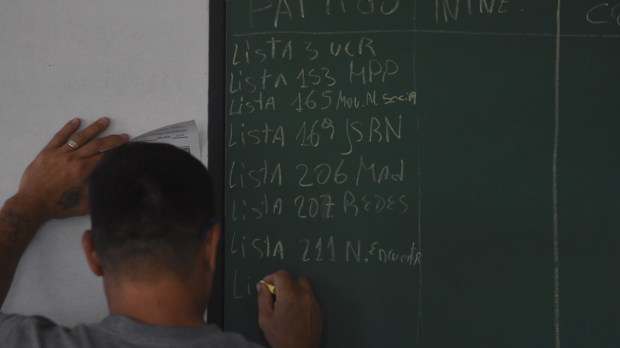 PARTIDO INTNE. CO
LISTA 3 UCR
LISTA 153 MPP
LISTA 165 MOV. N Social
LISTA 169 JSRN
LISTA 206 MAd
LISTA 207 REDES
LISTA 211 N. Encuentr
Li